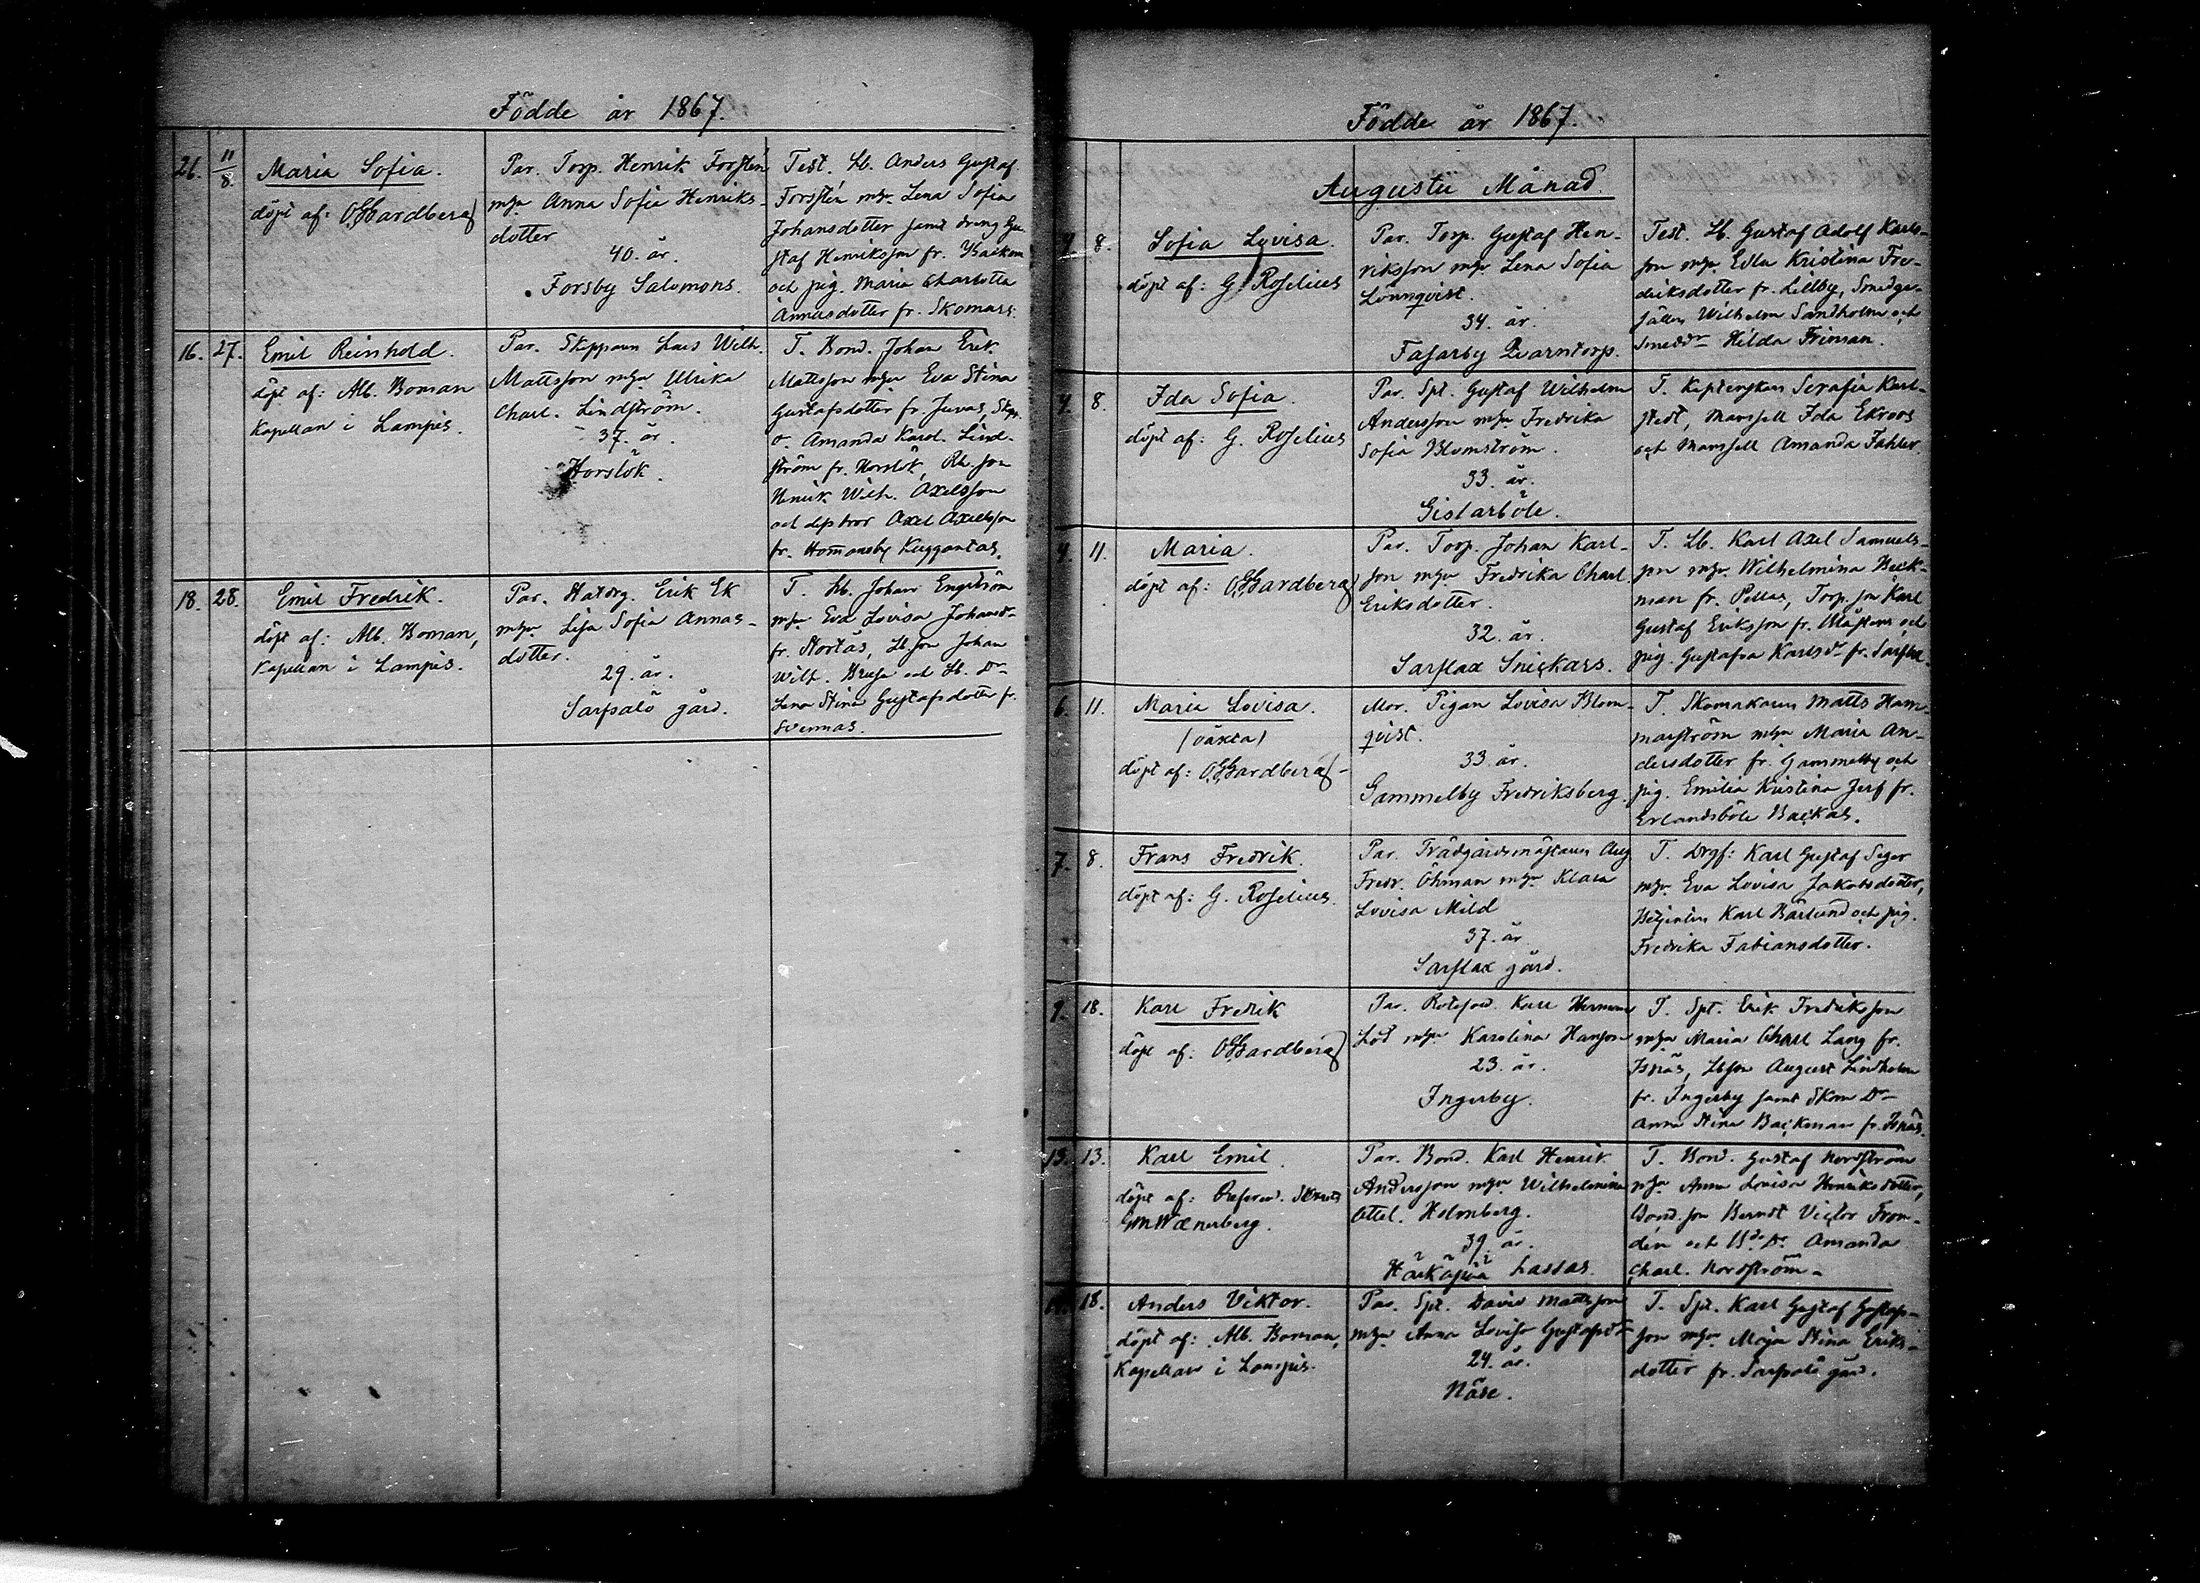 Födde år 1867.
26. 11/8. Maria Sofia.
döpt af: OGardberg
Par. Torp. Henrik Forstén
mhu Anna Sofia Henriks-
dotter
40. år.
Forsby Salomons.
Test. Lb. Anders Gustaf
Forstén mhu Lena Sofia
Johansdotter samt dreng Gu-
staf Henriksson fr. Backom
och pig. Maria Charlotta
Annasdotter fr. Skomars.
16. 27. Emil Reinhold.
döpt af: Alb. Boman
Kapellan i Lampis.
Par. Skepparen Lars Wilh.
Mattsson mhu Ulrika
Charl. Lindström.
37. år.
Horslök.
T. Bond. Johan Erik
Mattsson mhu Eva Stina
Gustafsdotter fr. Juvas, Skepp.
Amanda Karol. Lind-
ström fr. Horslök,
Henrik Wilh. Axelsson
och Axel Axelsson
fr. Hommansby Kuggontas.
18. 28. Emil Fredrik.
döpt af: Alb. Boman,
Kapellan i Lampis.
Par. Erik Ek
mhu Lisa Sofia Annas-
dotter.
29. år.
Sarfsalö gård.
T. Lb. Johan Engström
mhu Eva Lovisa Johansdr
fr. Nortäs, Lb. son Johan
Wilh. och Lb. Dr
Lena Stina Gustafsdotter fr.
Svennas.
Födde år 1867.
Augusti Månad.
4. 8. Sofia Lovisa.
döpt af: G Roselius
Par. Torp. Gustaf Hen-
riksson mhu Lena Sofia
Lönnqvist.
34. år.
Fasarby Qvarntorp.
Test. Lb. Gustaf Adolf Karls-
son mhu Edla Kristina Fre-
driksdotter fr. Lillby, Smedge-
sällen Wilhelm Sandholm och
Smeddr Hilda Friman.
4. 8. Ida Sofia.
döpt af: G. Roselius
Par. Spt. Gustaf Wilhelm
Andersson mhu Fredrika
Sofia Blomström.
33. år.
Gislarböle.
T. Kaptenskan Serafia Karl-
stedt, Mamsell Ida Ekroos
och Mamsell Amanda Fahler.
4. 11. Maria.
döpt af: OGardberg
Par. Torp. Johan Karl-
son mhu Fredrika Charl.
Eriksdotter.
32. år.
Sarflax Snickars.
T. Lb. Karl Axel Samuels-
son mhu Wilhelmina Beck-
man fr. Pellas, Torp. son Karl
Gustaf Eriksson fr. Mästars och
pig. Gustafva Karlsdr fr. Sarflax.
6. 11. Maria Lovisa.
(oäkta)
döpt af: OGardberg
Mor. Pigan Lovisa Blom-
qvist.
33. år.
Gammelby Fredriksberg.
T. Skomakaren Matts Ham-
marström mhu Maria An-
dersdotter fr. Gammelby och
pig. Emilia Kristina Jerf fr.
Erlandsböle Backas.
7. 8. Frans Fredrik.
döpt af: G. Roselius.
Par. Trädgårdsmästaren Aug.
Fredr. Öhman mhu Klara
Lovisa Mild
37. år
Sarflax gård.
T. Drgs: Karl Gustaf Seger
mhu Eva Lovisa Jakobsdotter,
Betjenten Karl Bärlund och pig.
Fredrika Fabiansdotter.
9. 18. Karl Fredrik
döpt af: OGardberg
Par. Karl Herman
Löd mhu Karolina Hanson
23. år.
Ingerby.
T. Spt. Erik Fredriksson
mhu Maria Charl. Lang fr.
Isnäs, Lbson August Lindholm
fr. Ingerby samt Skom Dr
Anna Stina Backman fr. Isnäs.
13. 13. Karl Emil.
döpt af:
GMWænerberg.
Par. Bond. Karl Henrik
Andersson mhu Wilhelmina
Ottel. Holmberg.
39. år.
Härkäpää Lassas.
T. Bond. Gustaf Nordström
mhu Anna Lovisa Henriksdotter,
Bond. son Berndt Victor From-
dén och Bd. Dr. Amanda
Charl. Nordström.
18. Anders Viktor.
döpt af: Alb. Boman,
Kapellan i Lampis.
Par. Spt. David Mattsson
mhu Anna Lovisa Gustafsdr
24. år.
Näse.
T. Spt. Karl Gustaf Gustafs-
son mhu Maja Stina Eriks-
dotter fr. Sarfsalö gård.